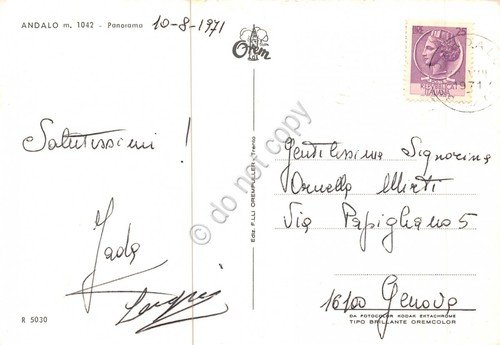 ANDALO m. 1042 - Panorama
10-8-1971
Orem
Salutissimi !
Jada
Luigi
R 5030
Ediz. F.LLI OREMPULLER - Trento
L. 25
REPUBBLICA
ITALIANA
1971
Gentilissima Signorina
Ornella Mirti
Via Papigliano 5
16100 Genova
DA FOTOCOLOR KODAK EKTACHROME
TIPO BRILLANTE OREMCOLOR
do not copy